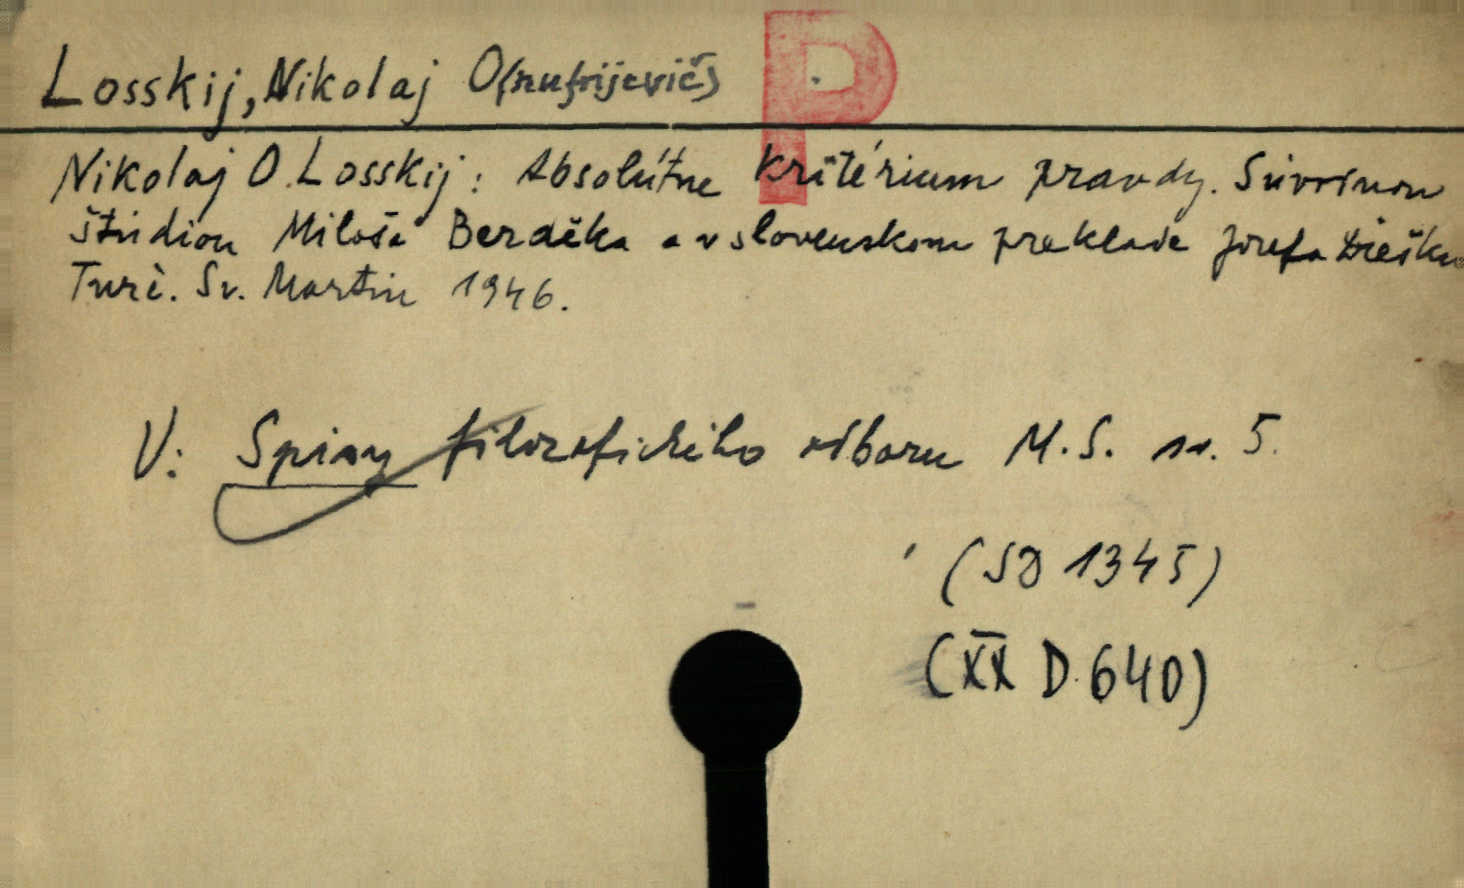 Losskij, Nikolaj O(nufrijevič)
P
Nikolaj O. Losskij: Absolútne kritérium pravdy. S úvodnou
štúdiou Miloša Berdéka a v slovenskom preklade Jozefa Diešku
Turč. Sv. Martin 1946.
V: Spisy filozofického odboru M.S. sv. 5.
(SD 1345)
(XX D. 640)